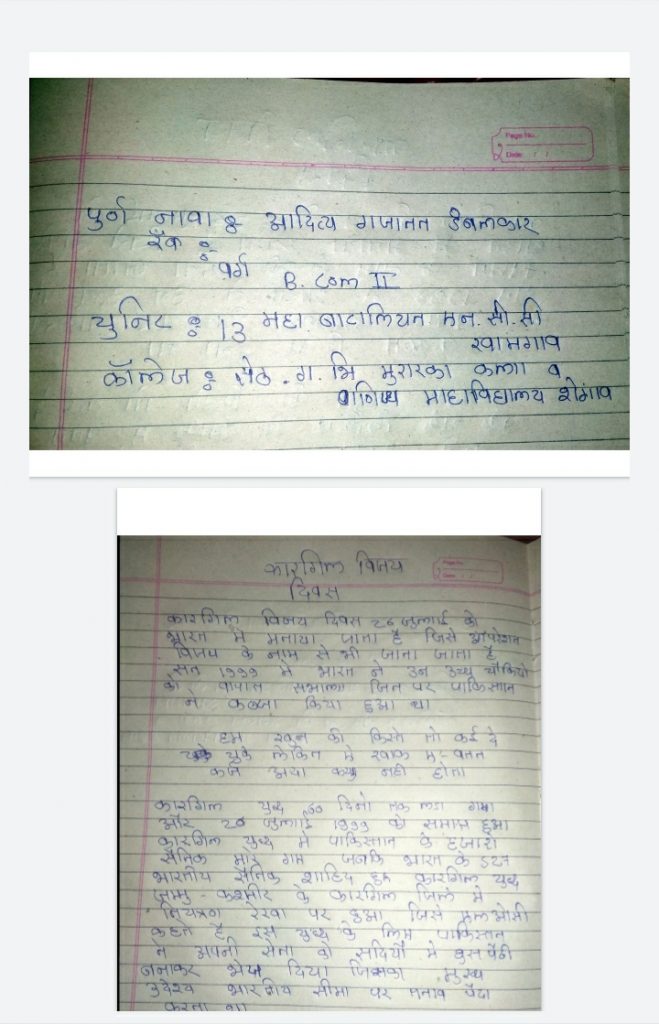 Page No.
Date: / /
पुर्ण नावा : आदित्य गजानन डंबलकार
रँक :
वर्ग B. Com II
युनिट : 13 महा. बाटालियन एन. सी. सी
खामगाव
कॉलेज : सेठ. ग. भि मुरारका कला व
वाणिज्य माहाविद्यालय शेगांव
Page No.
Date: / /
कारगिल विजय
दिवस
कारगिल विजय दिवस 26 जुलाई को
भारत मे मनाया जाता है जिसे ऑपरेशन
विजय के नाम से भी जाना जाता है
सन 1999 मे भारत ने उन उच्च चौकियो
को वापास सभाला जिन पर पाकिस्तान
ने कब्जा किया हुआ था
हम खुन की किस्ते तो कई दे
चुके लेकिन मे खाक म-वतन
कर्ज अया क्यु नही होता
कारगिल युध्द 60 दिनो तक लडा गया
और 26 जुलाई 1999 को समाप्त हुआ
कारगिल युध्द मे पाकिस्तान के हजारो
सैनिक मारे गए जबकि भारत के 527
भारतीय सैनिक शाहिद हुए कारगिल युध्द
जम्मु - कश्मीर के कारगिल जिले मे
नियत्रण रेखा पर हुआ जिसे एलओसी
कहते है इस युध्द के लिए पाकिस्तान
ने अपनी सेना को सर्दियों मे घुसपेठी
बनाकर भेज दिया जिसका मुख्य
उदेश्य भारतीय सीमा पर तनाव पैदा
करना था